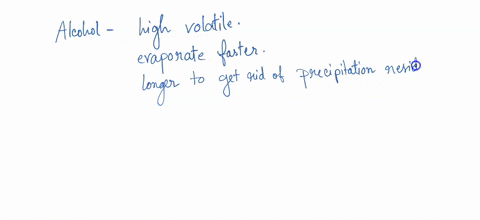 Alcohol - high volatile.
evaporate faster.
longer to get rid of precipitation